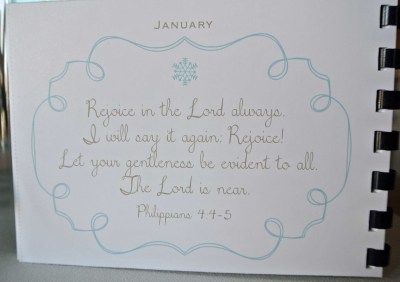 January
Rejoice in the Lord always.
I will say it again: Rejoice!
Let your gentleness be evident to all.
The Lord is near.
Philippians 4:4-5